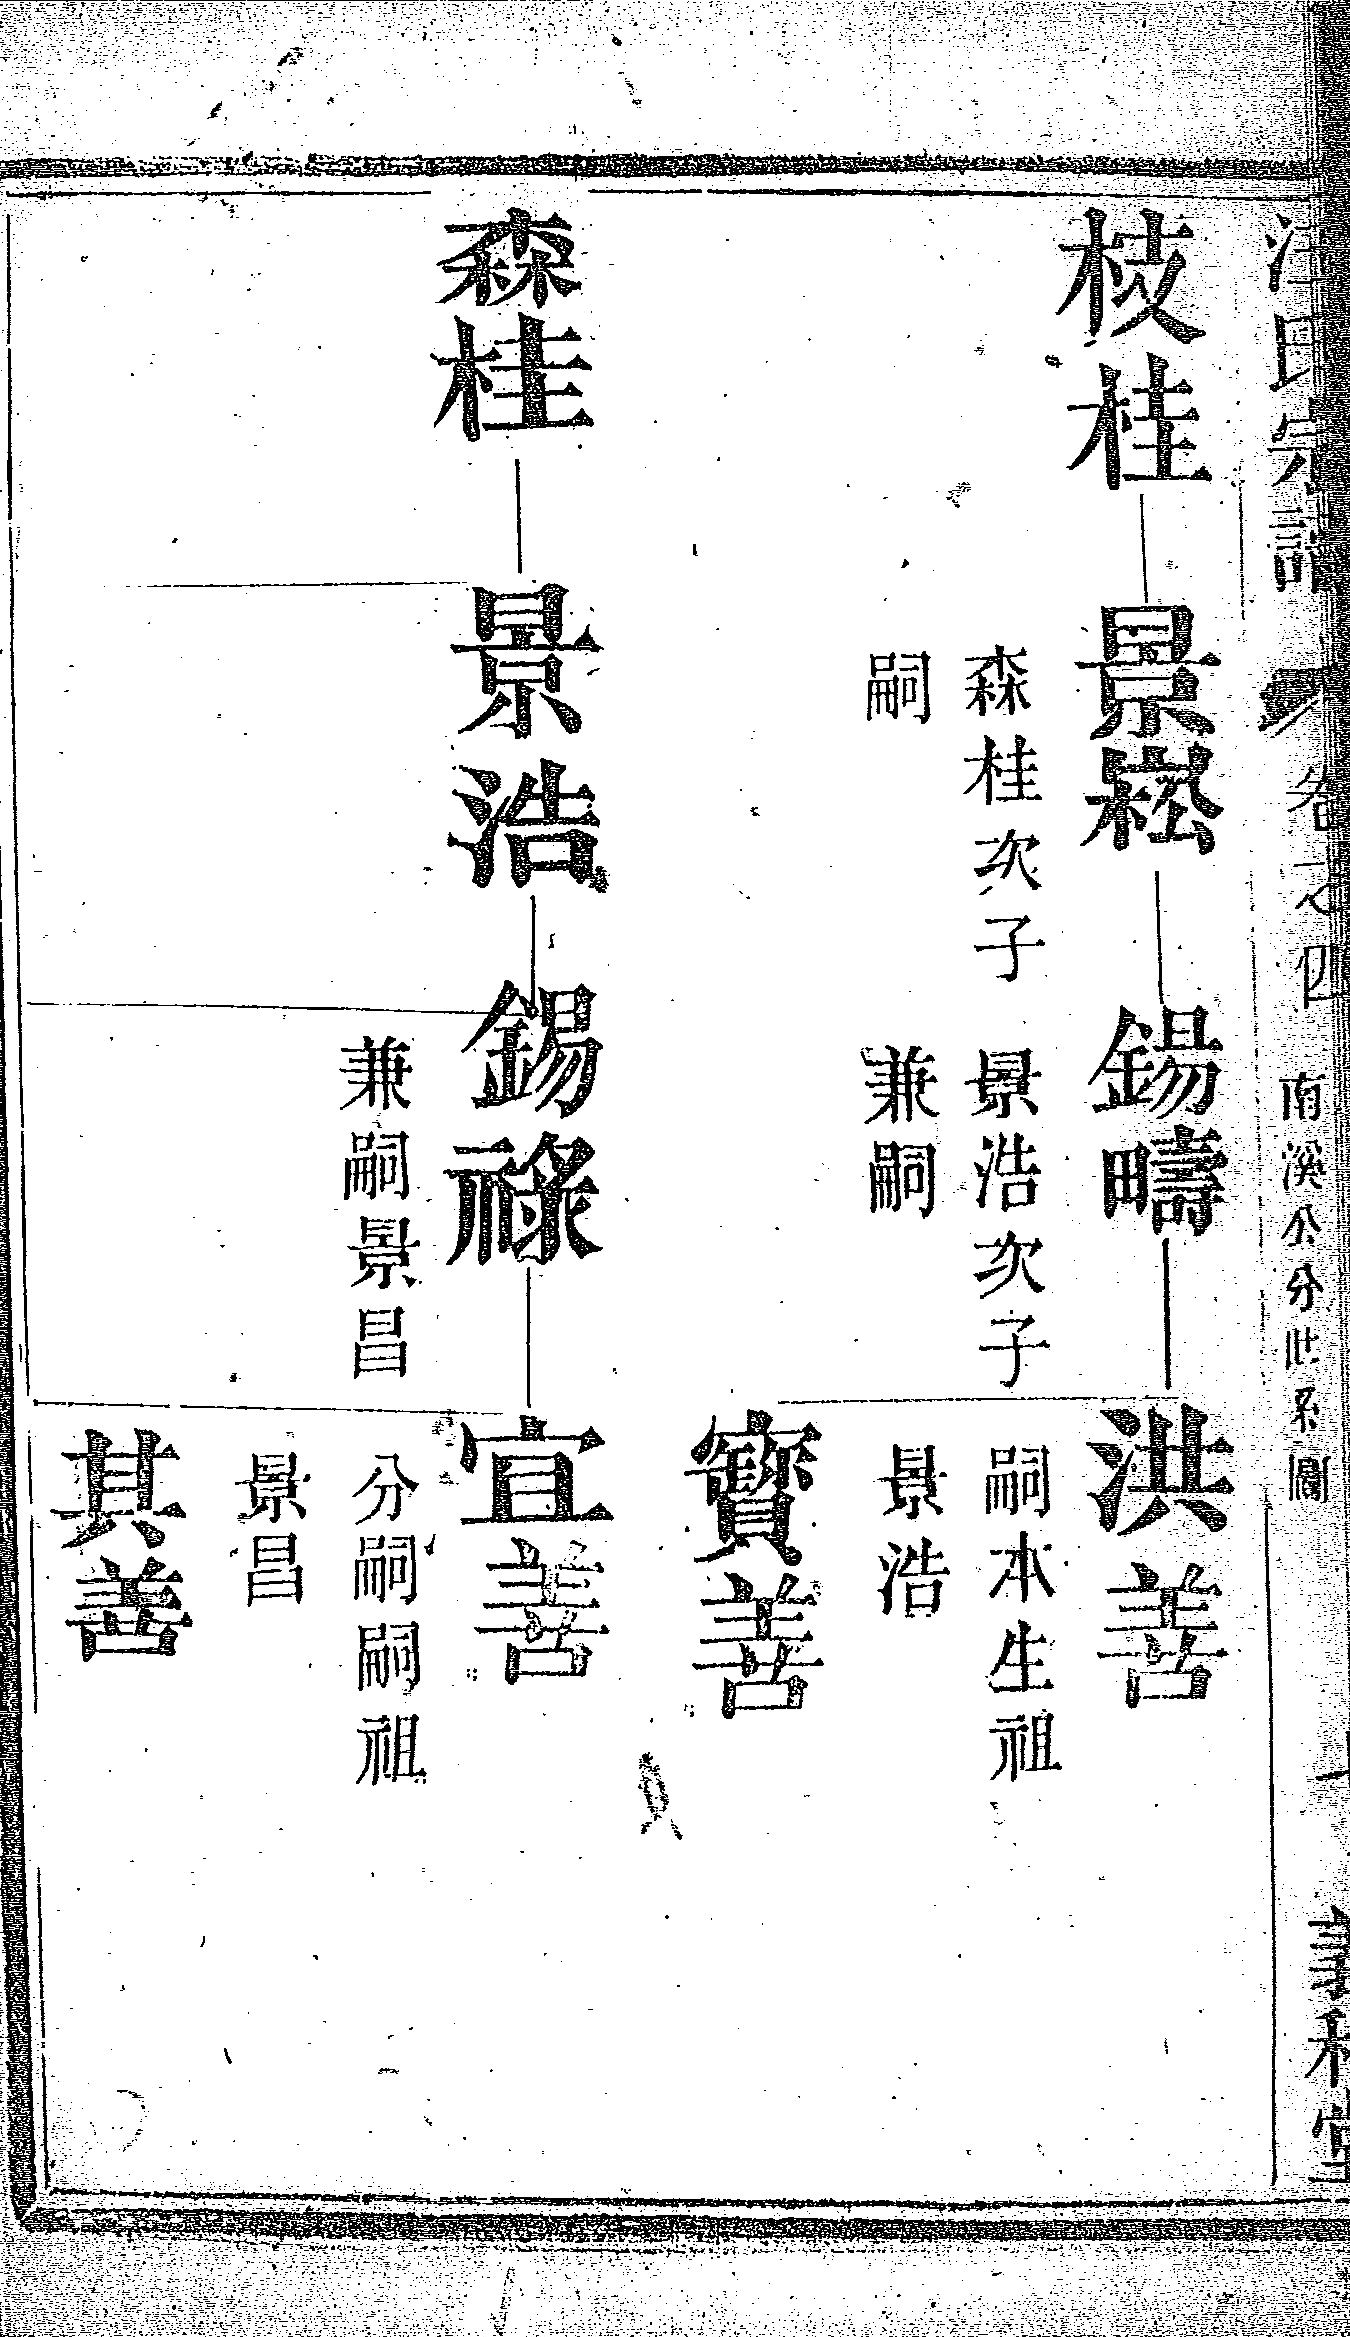 汪氏宗譜
卷之四
南溪公分世系圖
枝桂
景崧
森桂次子
嗣
錫疇
景浩次子
兼嗣
洪善
嗣本生祖
景浩
寶善
森桂
景浩
錫祿
兼嗣景昌
宣善
分嗣嗣祖
景昌
其善